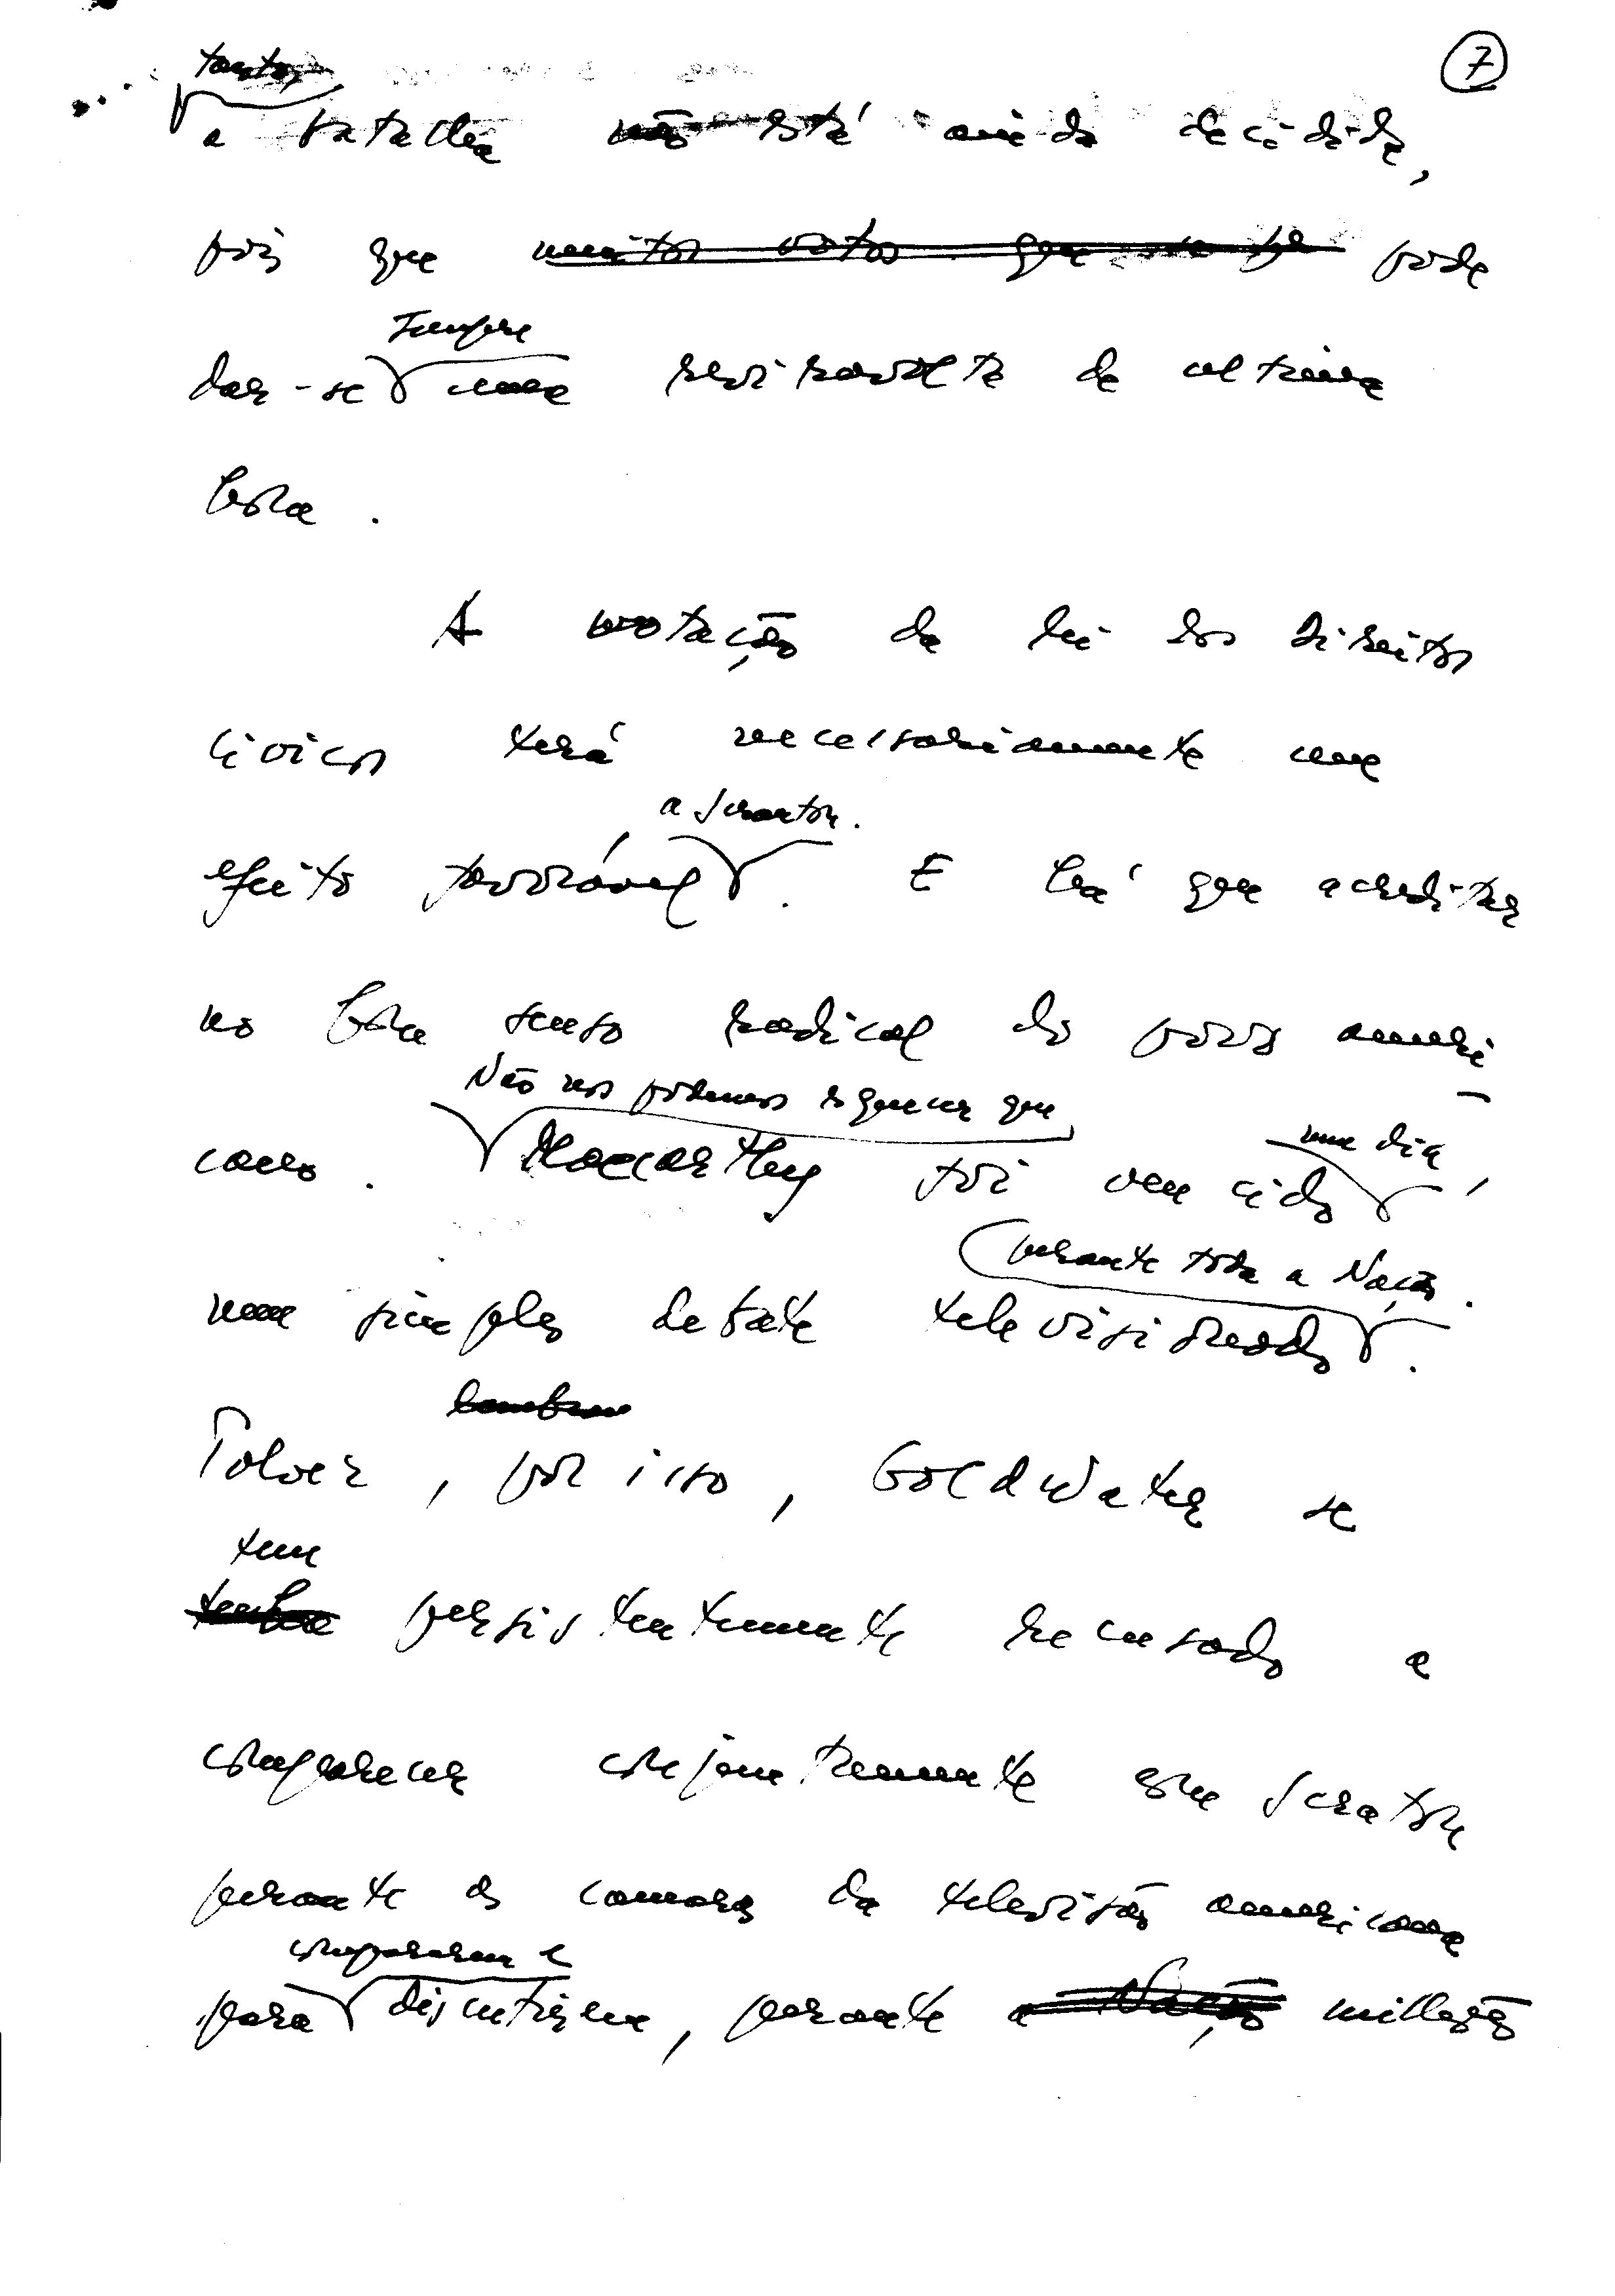 7
tanto,
a batalha não está ainda decidida,
pois que muitos votos que pode
sempre
dar-se uma reviravolta de ultima
hora.
A votação da lei dos direitos
civicos terá necessariamente um
a Scranton.
efeito favorável. E há que acreditar
no bom senso radical do povo ameri-
Não nos podemos esquecer que
um dia,
cano. MacCarthy foi vencido
perante toda a Nação.
num simples debate televisionado.
tambem
Talvez, por isso, Goldwater se
tem
tenha persistentemente recusado a
comparecer conjuntamente com Scraton
perante as camaras da televisão americana
compararem e
para discutirem, perante a Nação milhões